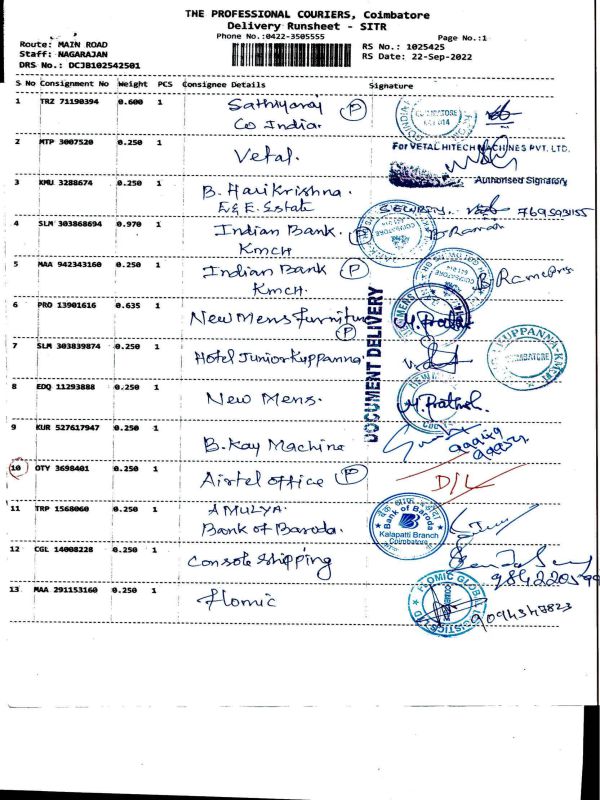 THE PROFESSIONAL COURIERS, Coimbatore
Delivery Runsheet - SITR
Phone No.:0422-3505555
Page No.:1
Route: MAIN ROAD
RS No.: 1025425
Staff: NAGARAJAN
RS Date: 22-Sep-2022
DRS No.: DCJB102542501
S No Consignment No Weight PCS Consignee Details Signature
1 TRZ 71190394 0.600 1 Sathiyaraj P
Co India.
COIMBATORE
2 MTP 3007520 0.250 1 Vetal.
For VETAL HITECH MACHINES PVT. LTD.
Authorised Signatory
3 KMU 3288674 0.250 1 B. Harikrishna.
E&E. Estate
SECURITY.
4 SLM 303868694 0.970 1 Indian Bank. P
KMCH
B Raman
5 MAA 942343160 0.250 1 Indian Bank P
KMCH.
6 PRO 13901616 0.635 1 New Mens furniture
P
DOCUMENT DELIVERY
7 SLM 303839874 0.250 1 Hotel Junior Kuppanna
KUPPANNA
COIMBATORE
8 EDQ 11293888 0.250 1 New Mens.
M. Prathish.
9 KUR 527617947 0.250 1 B. Kay Machine
10 OTY 3698401 0.250 1 Airtel office P
D/L
11 TRP 1568060 0.250 1 AMULYA.
Bank of Baroda.
Bank of Baroda
Kalapatti Branch
Coimbatore
12 CGL 14008228 0.250 1 Console Shipping
13 MAA 291153160 0.250 1 Flomic
FLOMIC GLOBAL LOGISTICS LTD
9094347823